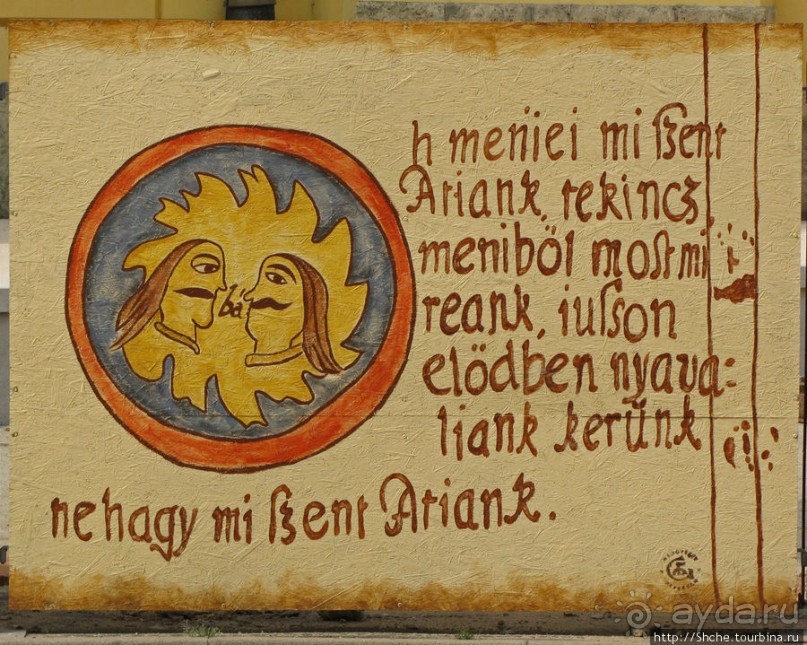 h meńiei mi ſzent
Atiank, tekincz
meniből moſt mi
reank, iuſson
elödben nyava=
liank kerünk
ne hagy mi ſzent Atiank.
bá
ayda.ru
http://Shche.tourbina.ru